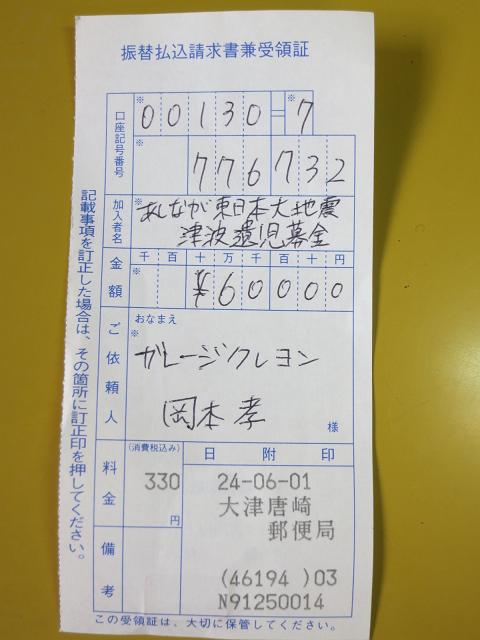 振替払込請求書兼受領証
口座記号番号
※ 00130=※7
※ 776732
加入者名
※ あしなが東日本大地震
津波遺児募金
金額
千 百 十 万 千 百 十 円
※ ¥60000
ご依頼人
おなまえ
※
ガレージクレヨン
岡本孝
様
料金
(消費税込み)
330
円
日附印
24-06-01
大津唐崎
郵便局
(46194 )03
N91250014
備考
この受領証は、大切に保管してください。
記載事項を訂正した場合は、その箇所に訂正印を押してください。